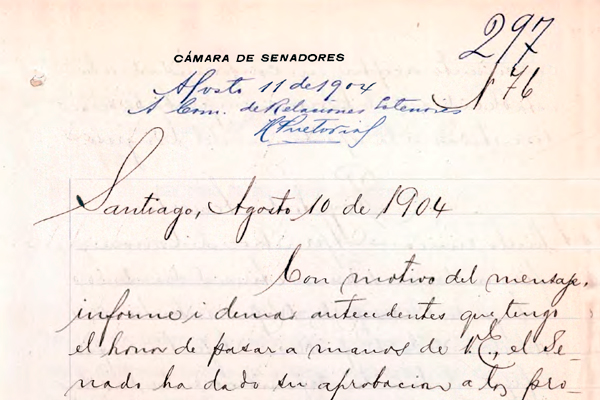 297
CÁMARA DE SENADORES
N 76
Agosto 11 de 1904
A Com. de Relaciones Esteriores
Santiago, Agosto 10 de 1904
Con motivo del mensaje,
informe i demas antecedentes que tengo
el honor de pasar a manos de V.E., el Se-
nado ha dado su aprobacion a los pro-